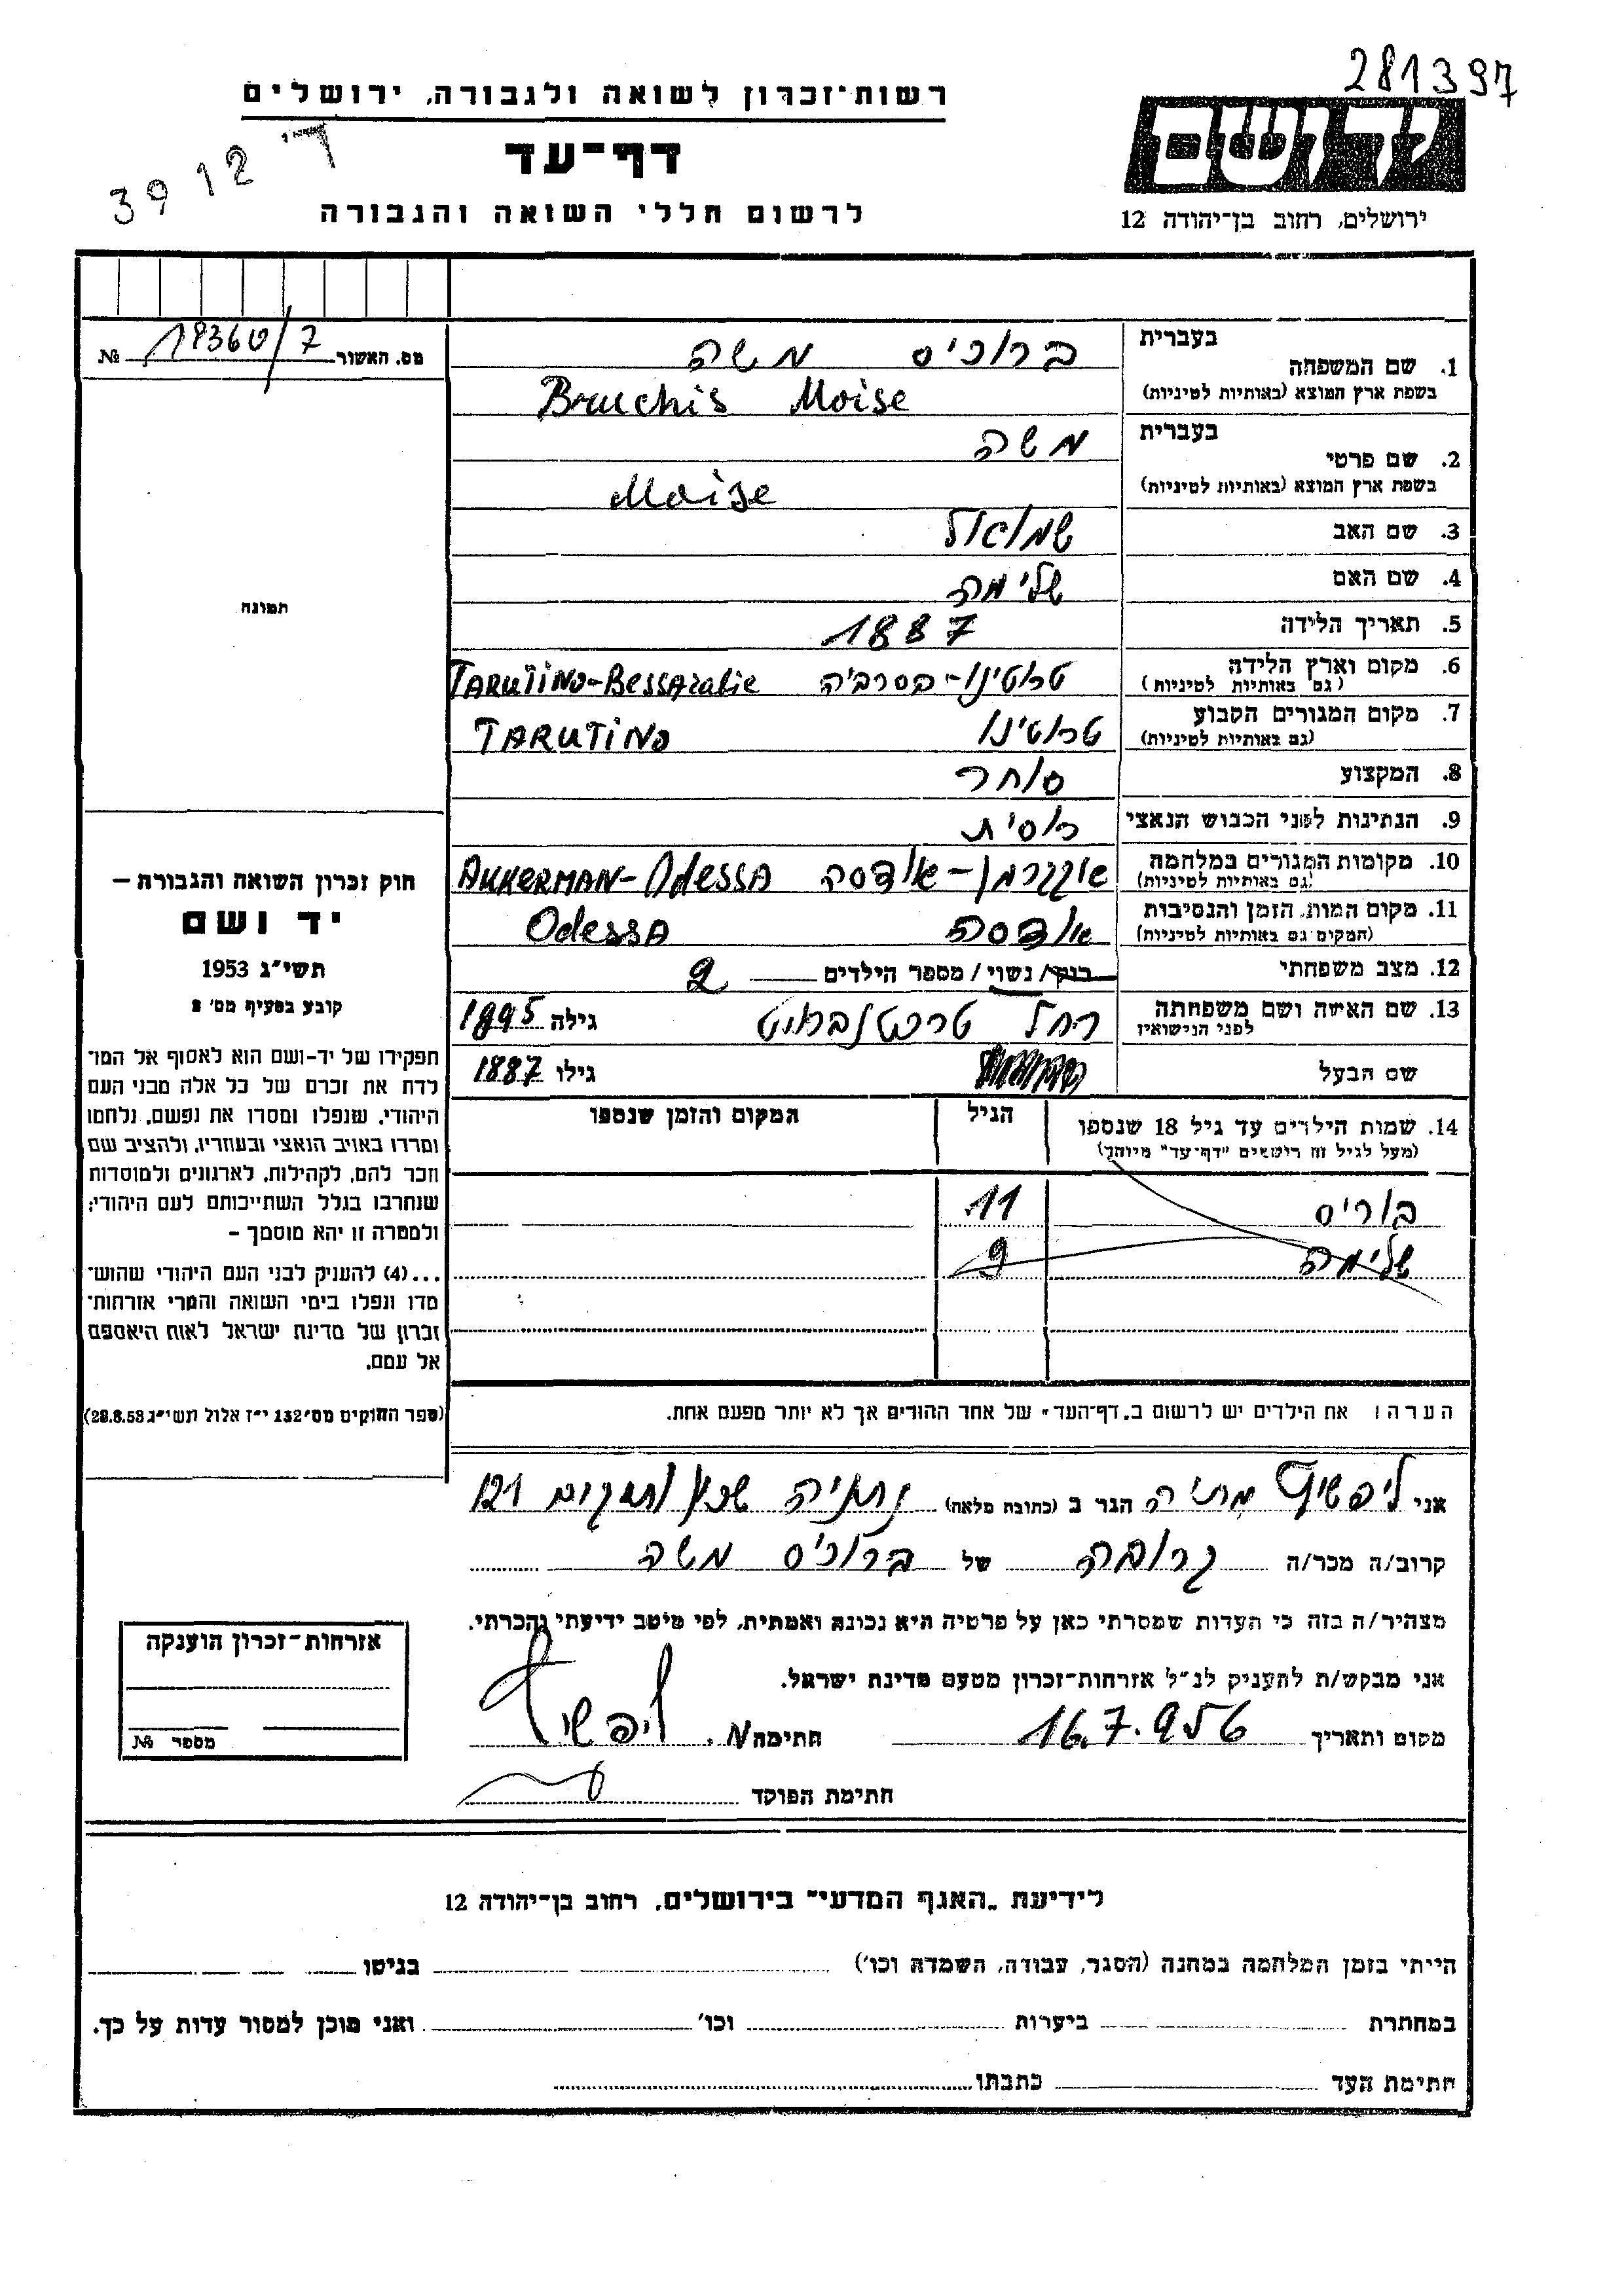 281397
רשות־זכרון לשואה ולגבורה, ירושלים
דף־עד
לרשום חללי השואה והגבורה
ד'
3912
יד ושם
ירושלים, רחוב בן־יהודה 12
מס. האשור 19360/7 №
בעברית
1. שם המשפחה
ברוכיס משה
בשפת ארץ המוצא (באותיות לטיניות)
Bruchis Moise
בעברית
2. שם פרטי
משה
בשפת ארץ המוצא (באותיות לטיניות)
Moise
3. שם האב שמואל
4. שם האם שלימה
5. תאריך הלידה 1887
6. מקום וארץ הלידה (גם באותיות לטיניות) טרוטינו-בסרביה TARUTINO-BessArabie
7. מקום המגורים הקבוע (גם באותיות לטיניות) טרוטינו TARUTINO
8. המקצוע סוחר
9. הנתינות לפני הכבוש הנאצי רוסית
10. מקומות המגורים במלחמה (גם באותיות לטיניות) אקרמן-אודסה AKKERMAN-OdessA
11. מקום המות, הזמן והנסיבות (המקום גם באותיות לטיניות) אודסה OdessA
12. מצב משפחתי רווק/ נשוי/ מספר הילדים 2
13. שם האשה ושם משפחתה לפני הנישואין רחל גילה 1895
שם הבעל גילו 1887
14. שמות הילדים עד גיל 18 שנספו (מעל לגיל זה רושמים "דף־עד" מיוחד) הגיל המקום והזמן שנספו
בוריס 11
שלימה 9
הערה: את הילדים יש לרשום ב„דף־העד" של אחד ההורים אך לא יותר מפעם אחת.
תמונה
חוק זכרון השואה והגבורת –
יד ושם
תשי"ג 1953
קובע בסעיף מס' 2
תפקידו של יד-ושם הוא לאסוף אל המו־
לדת את זכרם של כל אלה מבני העם
היהודי, שנפלו ומסרו את נפשם, נלחמו
ומרדו באויב הנאצי ובעוזריו, ולהציב שם
וזכר להם, לקהילות, לארגונים ולמוסדות
שנחרבו בגלל השתייכותם לעם היהודי;
ולמטרה זו יהא מוסמך –
...(4) להעניק לבני העם היהודי שהוש־
מדו ונפלו בימי השואה והמרי אזרחות־
זכרון של מדינת ישראל לאות היאספם
אל עמם.
(ספר החוקים מס' 132 י"ז אלול תשי"ג 28.8.53)
אני ליפשיץ הגר ב (כתובת מלאה) נתניה 121
קרוב/ה מכר/ה קרובה של ברוכיס משה
מצהיר/ה בזה כי העדות שמסרתי כאן על פרטיה היא נכונה ואמתית, לפי מיטב ידיעתי והכרתי.
אני מבקש/ת להעניק לנ"ל אזרחות־זכרון מטעם מדינת ישראל.
מקום ותאריך 16.7.956 חתימה ליפשיץ
חתימת הפוקד
אזרחות־זכרון הוענקה
מספר №
לידיעת „האגף המדעי" בירושלים, רחוב בן־יהודה 12
הייתי בזמן המלחמה במחנה (הסגר, עבודה, השמדה וכו') בגיטו
במחתרת ביערות וכו' ואני מוכן למסור עדות על כך.
חתימת העד כתבתו